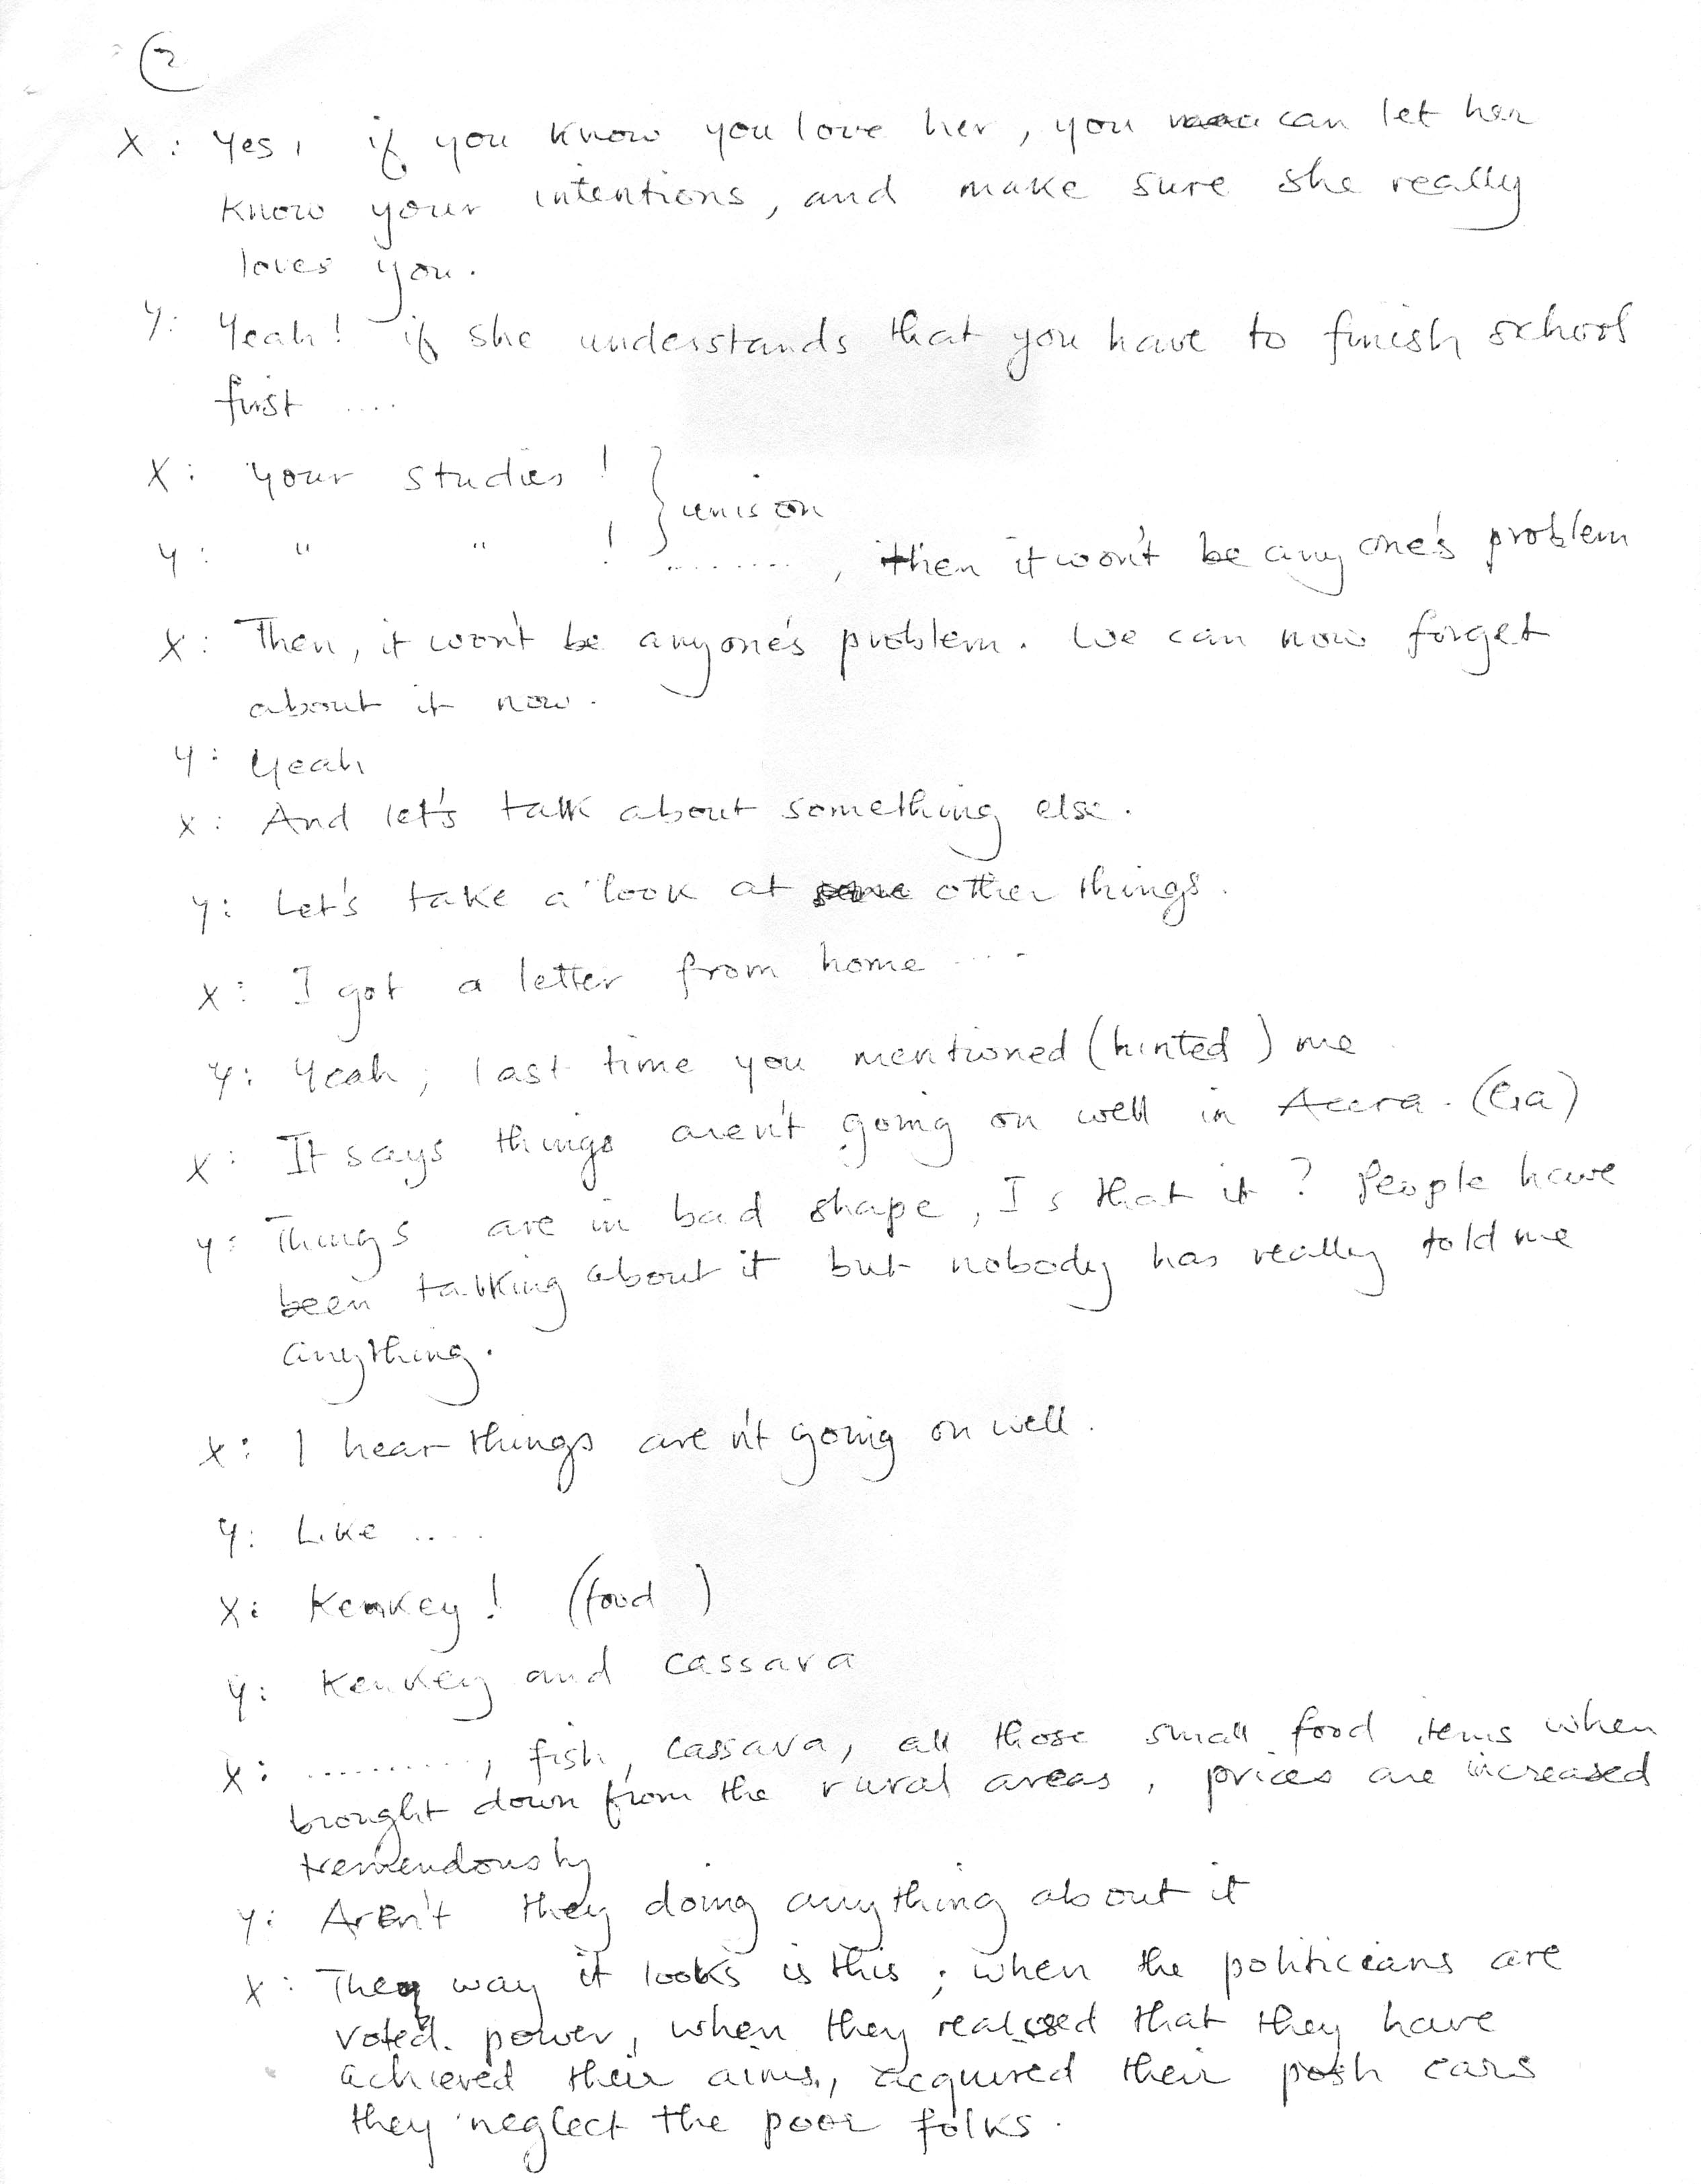 2
X: Yes, if you know you love her, you can let her
know your intentions, and make sure she really
loves you.
Y: Yeah! if she understands that you have to finish school
first ....
X: Your studies! } unison
Y: " " ! ........, then it won't be anyone's problem
X: Then, it won't be anyone's problem. We can now forget
about it now.
Y: Yeah
X: And let's talk about something else.
Y: Let's take a look at some other things.
X: I got a letter from home ....
Y: Yeah, last time you mentioned (hinted) me
X: It says things aren't going on well in Accra. (Ga)
Y: Things are in bad shape, Is that it? People have
been talking about it but nobody has really told me
anything.
X: I hear things aren't going on well.
Y: Like ....
X: Kenkey! (food)
Y: Kenkey and cassava
X: .........., fish, cassava, all those small food items when
brought down from the rural areas, prices are increased
tremendously
Y: Aren't they doing anything about it
X: They way it looks is this; when the politicians are
voted. power, when they realised that they have
achieved their aims, acquired their posh cars
they neglect the poor folks.